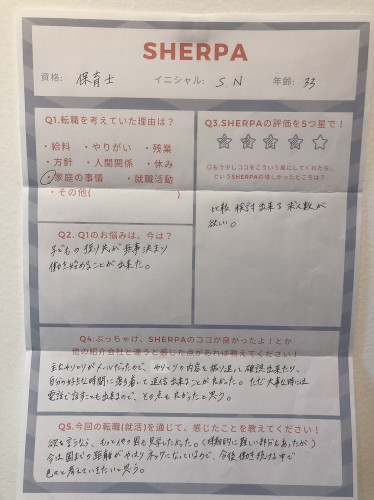 SHERPA
資格: 保育士 イニシャル: S.N 年齢: 33
Q1.転職を考えていた理由は?
・給料 ・やりがい ・残業
・方針 ・人間関係 ・休み
・家庭の事情 ・就職活動
・その他( )
Q2. Q1のお悩みは、今は?
子どもの預り先が無事決まり
働き始めることが出来た。
Q3.SHERPAの評価を5つ星で!
◎もう少しココをこういう風にしてくれたら、
というSHERPAの惜しかったところは?
比較検討出来る求人数が
欲しい。
Q4.ぶっちゃけ、SHERPAのココが良かったよ!とか
他の紹介会社と違うと感じた点があれば教えてください!
主なやりとりがメールだったので、やりとりの内容を振り返って確認出来たり、
自分の好きな時間に落ち着いて返信出来ることが良かった。ただ大事な時には
電話で話すことも出来るので、その点も良かったと思う。
Q5.今回の転職(就活)を通じて、感じたことを教えてください!
欲を言うなら、もっといろいろ園も見学したかった。(時期的に難しい部分もあったが)
今は園までの距離がやはりネックになっているので、今後働き続ける中で
色々と考えていきたいと思う。